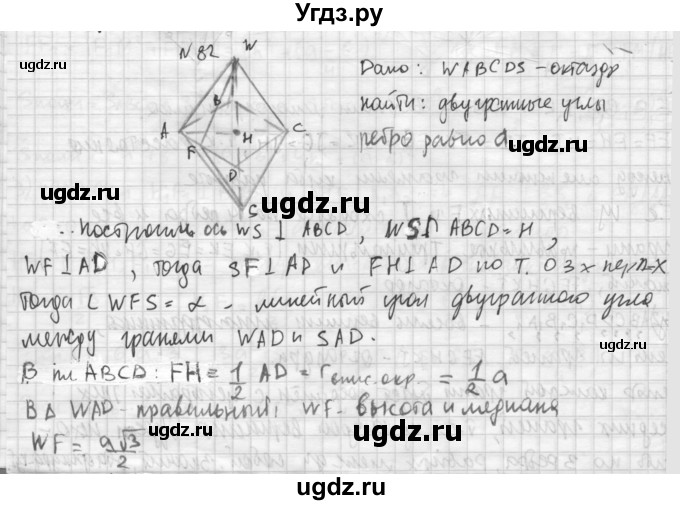 Угдз.ру
N 82
W
B
A
H
C
F
D
S
Дано: WABCDS – октаэдр
найти: двугранные углы
ребро равно a
Построим ось WS ⊥ ABCD, WS∩ABCD=H,
WF⊥AD, тогда SF⊥AD и FH⊥AD по т. о 3х пер-х
Тогда ∠WFS=α – линейный угол двугранного угла
между гранями WAD и SAD.
В пл ABCD: FH = 1/2 AD = r опис. окр. = 1/2 a
В Δ WAD – правильный, WF – высота и медиана
WF = a√3/2
ugdz.ru
ugdz.ru
ugdz.ru
ugdz.ru
ugdz.ru
ugdz.ru
ugdz.ru
ugdz.ru
ugdz.ru
ugdz.ru
ugdz.ru